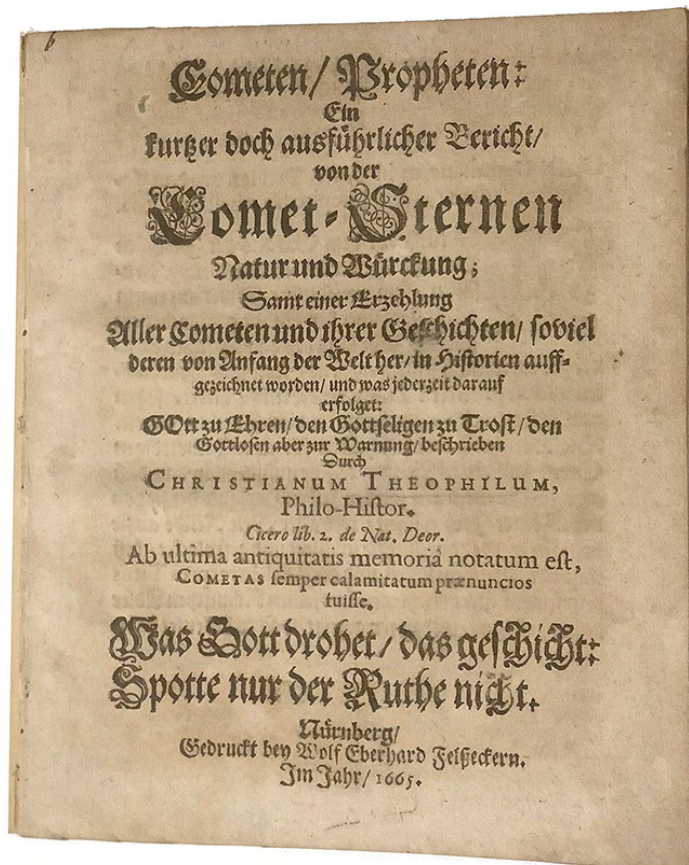 6
Cometen/ Propheten:
Ein
kurtzer doch ausführlicher Bericht/
von der
Comet-Sternen
Natur und Würckung;
Samt einer Erzehlung
Aller Cometen und ihrer Geschichten/ soviel
deren von Anfang der Welt her/ in Historien auff-
gezeichnet worden/ und was jederzeit darauf
erfolget:
GOtt zu Ehren/ den Gottseligen zu Trost/ den
Gottlosen aber zur Warnung/ beschrieben
Durch
CHRISTIANUM THEOPHILUM,
Philo-Histor.
Cicero lib. 2. de Nat. Deor.
Ab ultima antiquitatis memoriâ notatum est,
COMETAS semper calamitatum prænuncios
fuisse.
Was Gott drohet/ das geschicht:
Spotte nur der Ruthe nicht.
Nürnberg/
Gedruckt bey Wolf Eberhard Felßeckern.
Im Jahr/ 1665.